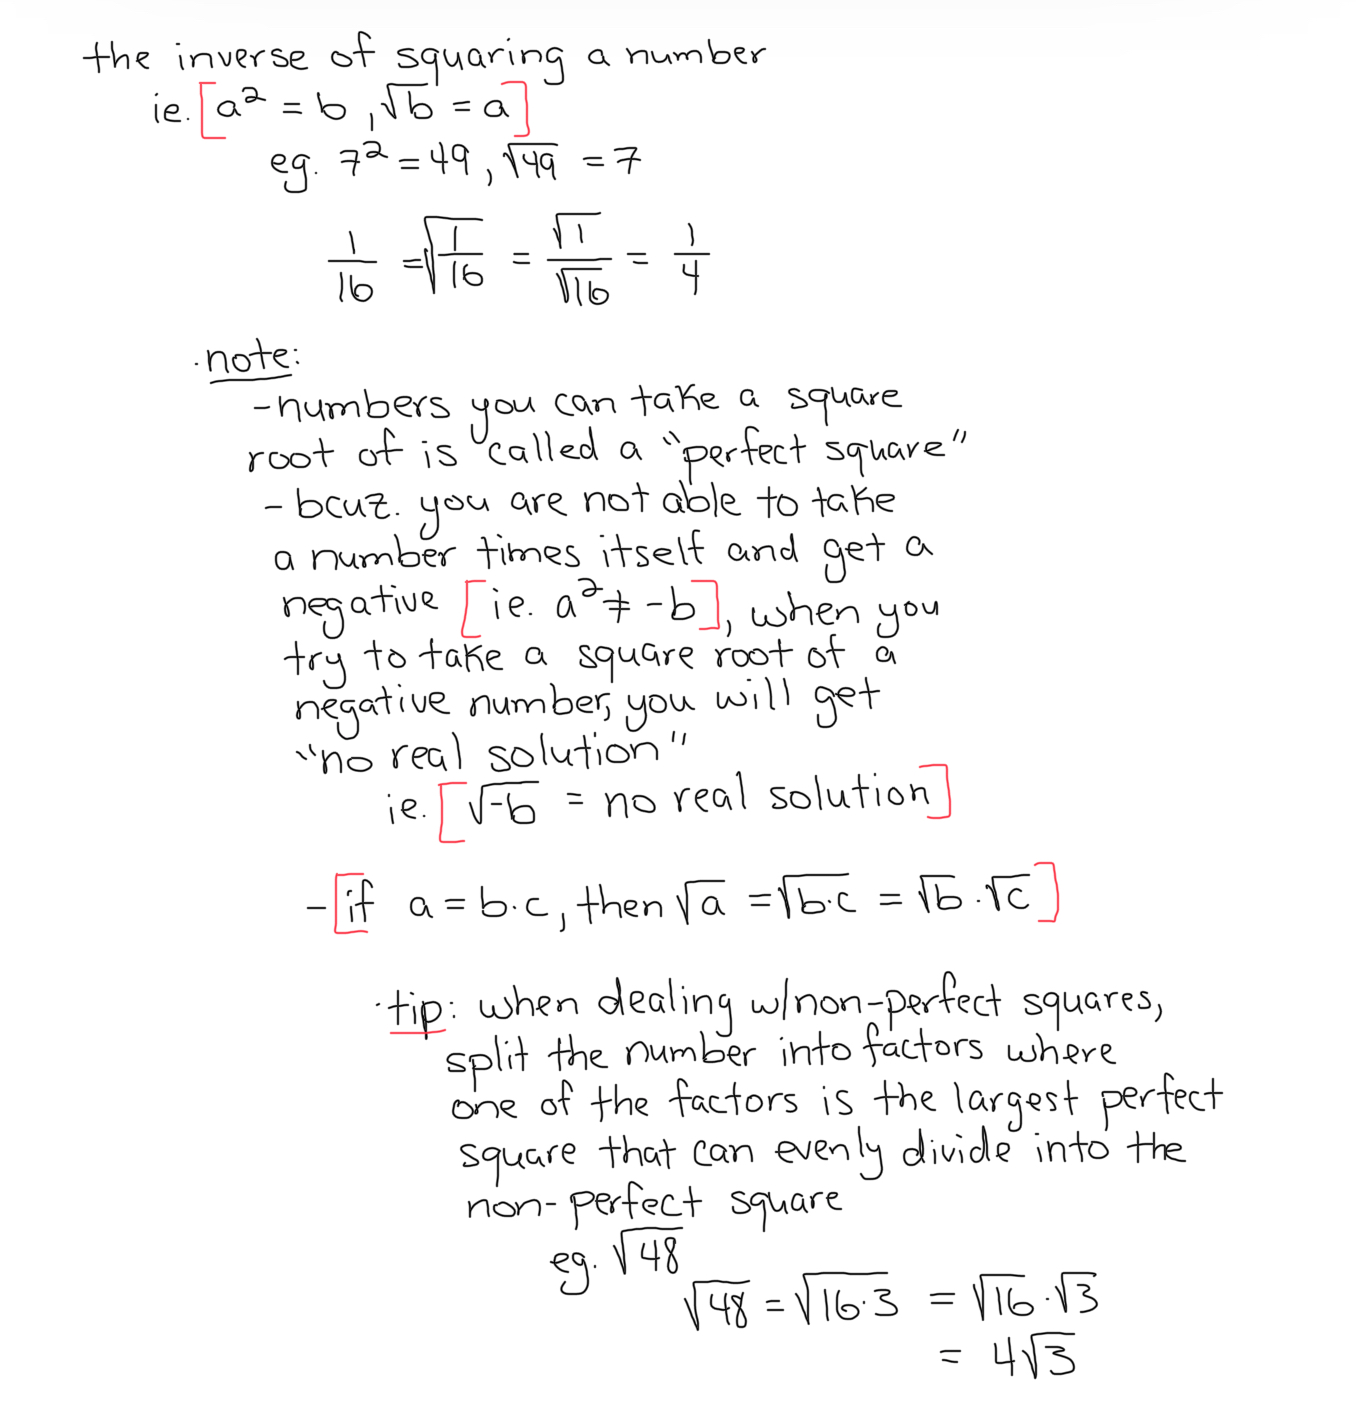 the inverse of squaring a number
ie. [a² = b, √b = a]
eg. 7² = 49, √49 = 7
1/16 = √(1/16) = √1/√16 = 1/4
·note:
-numbers you can take a square
root of is called a "perfect square"
- bcuz. you are not able to take
a number times itself and get a
negative [ie. a² ≠ -b], when you
try to take a square root of a
negative number, you will get
"no real solution"
ie. [√-b = no real solution]
-[if a = b·c, then √a = √b·c = √b·√c]
·tip: when dealing w/non-perfect squares,
split the number into factors where
one of the factors is the largest perfect
square that can evenly divide into the
non-perfect square
eg. √48
√48 = √16·3 = √16·√3
= 4√3